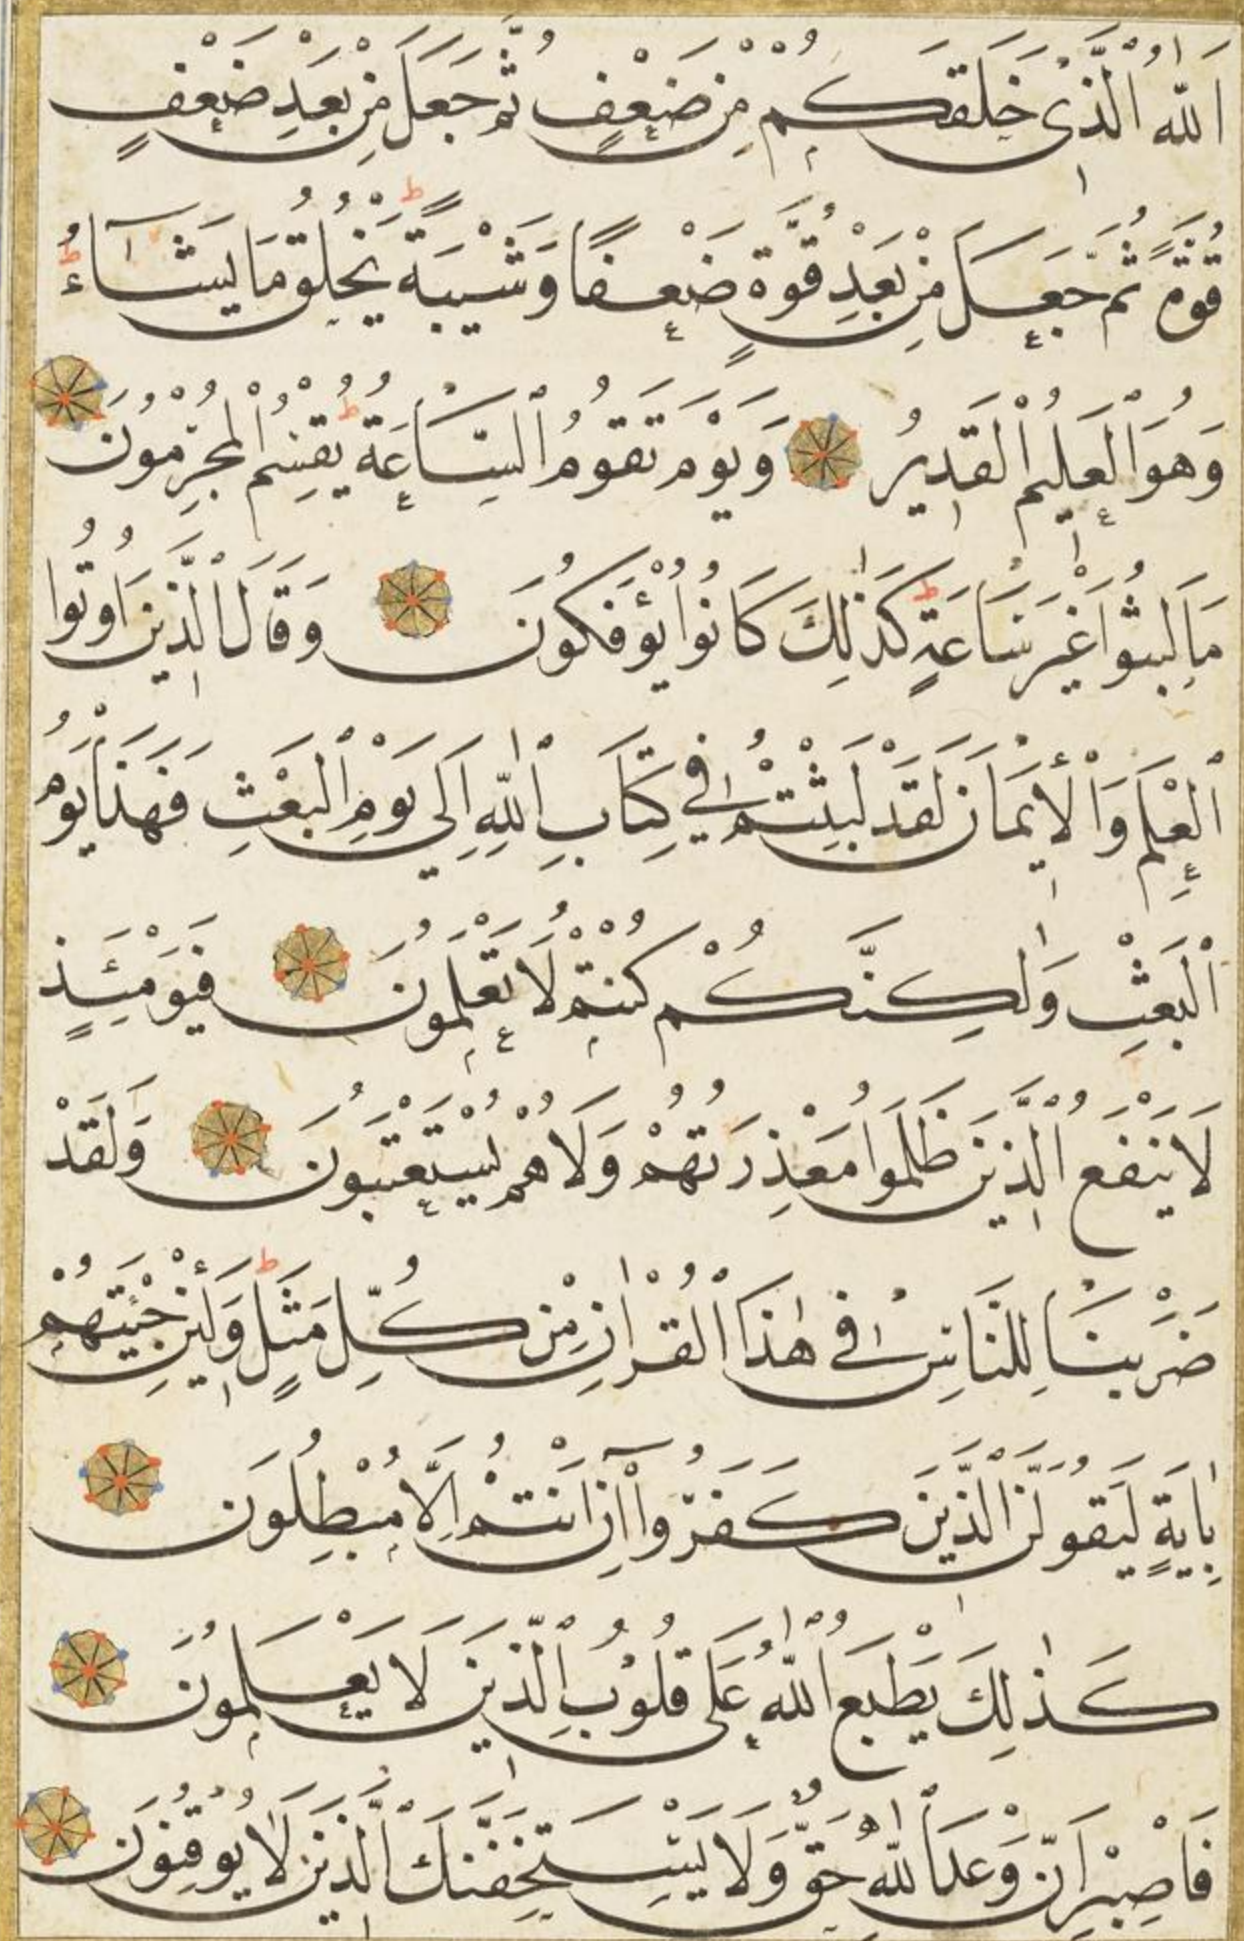 اَللّٰهُ الَّذٖى خَلَقَكُمْ مِنْ ضَعْفٍ ثُمَّ جَعَلَ مِنْ بَعْدِ ضَعْفٍ
قُوَّةً ثُمَّ جَعَلَ مِنْ بَعْدِ قُوَّةٍ ضَعْفًا وَشَيْبَةً ط يَخْلُقُ مَا يَشَٓاءُ ط
وَهُوَ الْعَلٖيمُ الْقَدٖيرُ وَيَوْمَ تَقُومُ السَّاعَةُ ط يُقْسِمُ الْمُجْرِمُونَ
مَا لَبِثُوا غَيْرَ سَاعَةٍ ط كَذٰلِكَ كَانُوا يُؤْفَكُونَ وَقَالَ الَّذٖينَ اُوتُوا
الْعِلْمَ وَالْاٖيمَانَ لَقَدْ لَبِثْتُمْ فٖى كِتَابِ اللّٰهِ اِلٰى يَوْمِ الْبَعْثِ فَهَذَا يَوْمُ
الْبَعْثِ وَلٰكِنَّكُمْ كُنْتُمْ لَا تَعْلَمُونَ فَيَوْمَئِذٍ
لَا يَنْفَعُ الَّذٖينَ ظَلَمُوا مَعْذِرَتُهُمْ وَلَا هُمْ يُسْتَعْتَبُونَ وَلَقَدْ
ضَرَبْنَا لِلنَّاسِ فٖى هٰذَا الْقُرْاٰنِ مِنْ كُلِّ مَثَلٍ ط وَلَئِنْ جِئْتَهُمْ
بِاٰيَةٍ لَيَقُولَنَّ الَّذٖينَ كَفَرُٓوا اِنْ اَنْتُمْ اِلَّا مُبْطِلُونَ
كَذٰلِكَ يَطْبَعُ اللّٰهُ عَلٰى قُلُوبِ الَّذٖينَ لَا يَعْلَمُونَ
فَاصْبِرْ اِنَّ وَعْدَ اللّٰهِ حَقٌّ وَلَا يَسْتَخِفَّنَّكَ الَّذٖينَ لَا يُوقِنُونَ